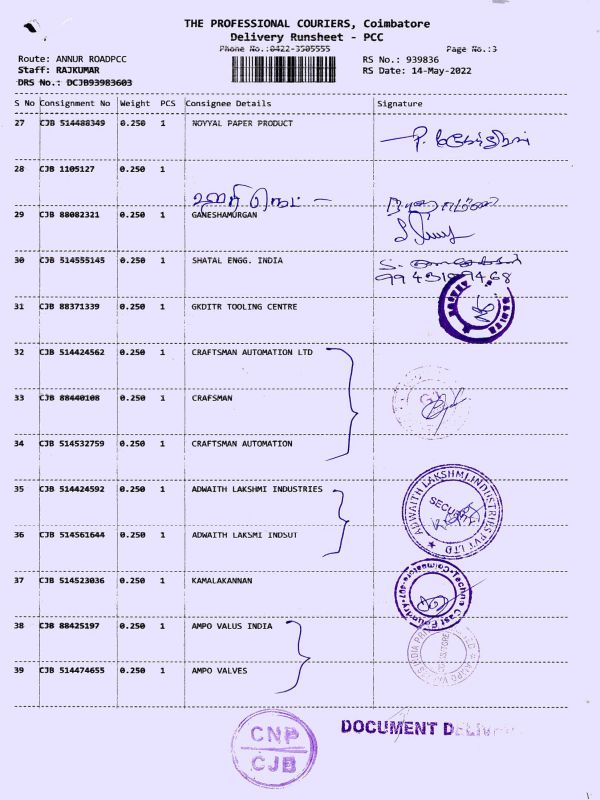 THE PROFESSIONAL COURIERS, Coimbatore
Delivery Runsheet - PCC
Phone No.:0422-3505555
Page No.:3
Route: ANNUR ROADPCC
RS No.: 939836
Staff: RAJKUMAR
RS Date: 14-May-2022
DRS No.: DCJB93983603
S No Consignment No Weight PCS Consignee Details Signature
27 CJB 514488349 0.250 1 NOYYAL PAPER PRODUCT
28 CJB 1105127 0.250 1
29 CJB 88082321 0.250 1 GANESHAMURGAN
30 CJB 514555145 0.250 1 SHATAL ENGG. INDIA
31 CJB 88371339 0.250 1 GKDITR TOOLING CENTRE
32 CJB 514424562 0.250 1 CRAFTSMAN AUTOMATION LTD
33 CJB 88440108 0.250 1 CRAFSMAN
34 CJB 514532759 0.250 1 CRAFTSMAN AUTOMATION
35 CJB 514424592 0.250 1 ADWAITH LAKSHMI INDUSTRIES
ADWAITH LAKSHMI INDUSTRIES PVT LTD
SECURITY
36 CJB 514561644 0.250 1 ADWAITH LAKSMI INDSUT
37 CJB 514523036 0.250 1 KAMALAKANNAN
38 CJB 88425197 0.250 1 AMPO VALUS INDIA
39 CJB 514474655 0.250 1 AMPO VALVES
CNP
CJB
DOCUMENT